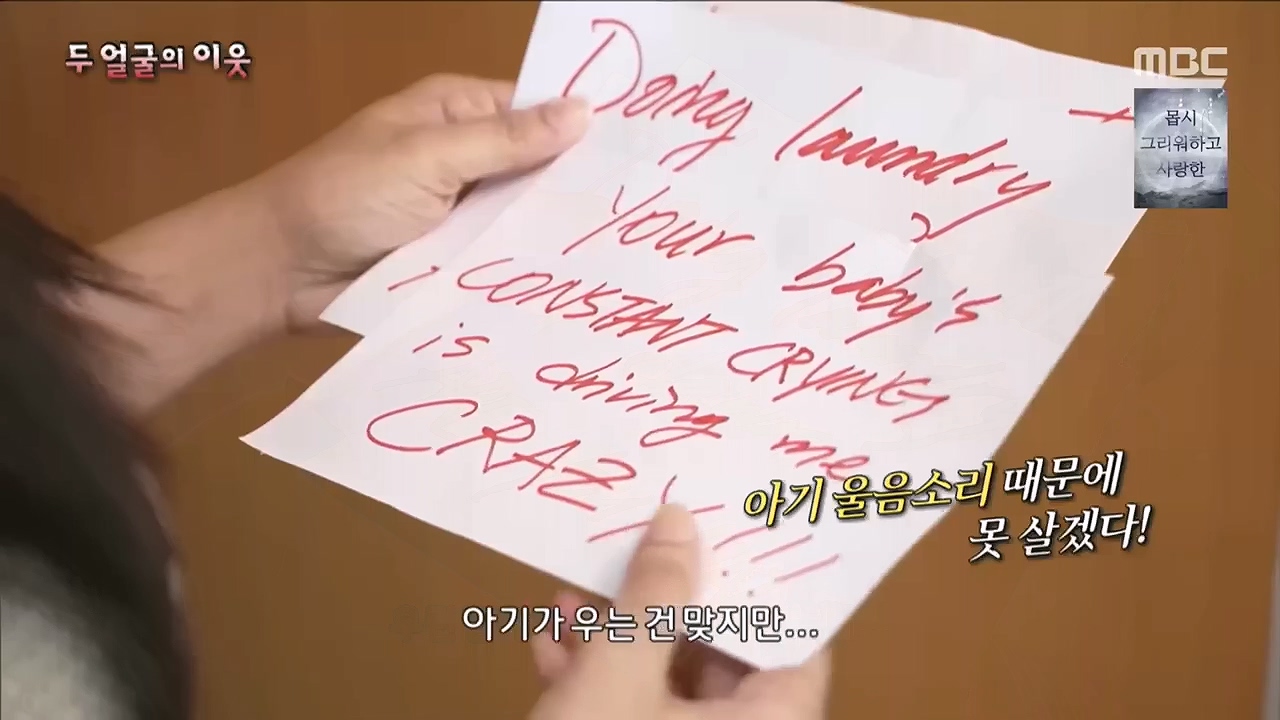 두 얼굴의 이웃
MBC
몹시
그리워하고
사랑한
Doing laundry
Your baby's
CONSTANT CRYING
is driving me
CRAZY!!!
아기 울음소리 때문에
못 살겠다!
아기가 우는 건 맞지만...